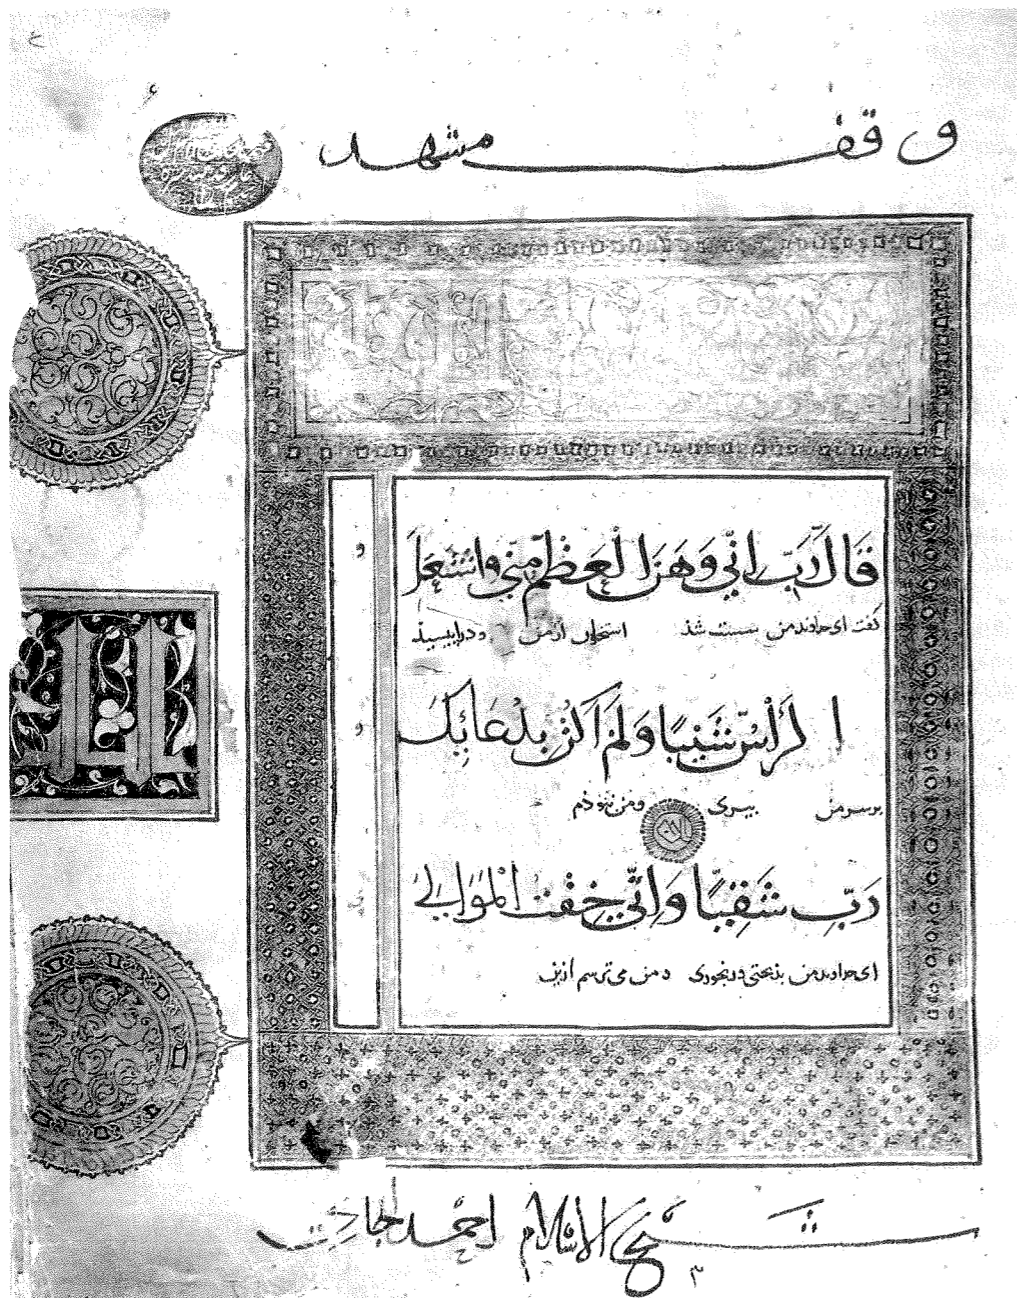 وقف مشهد
قَالَ رَبِّ انّي وَهَنَ الْعَظْمُ مِنّي وَاشْتَعَلَ
كفت ای خداوند من بسست شذ استخوان از من و درابیسید
الرَّأْسُ شَيْبًا وَلَمْ اَكُنْ بِدُعَائِكَ
بر سر من پیری و من نبوذم
رَبِّ شَقِيًّا وَاِنّي خِفْتُ الْمَوَالِيَ
ای خداوند من بذبختی و رنجوری و من می ترسم ازین
شيخ الاسلام احمد الجامي
٣